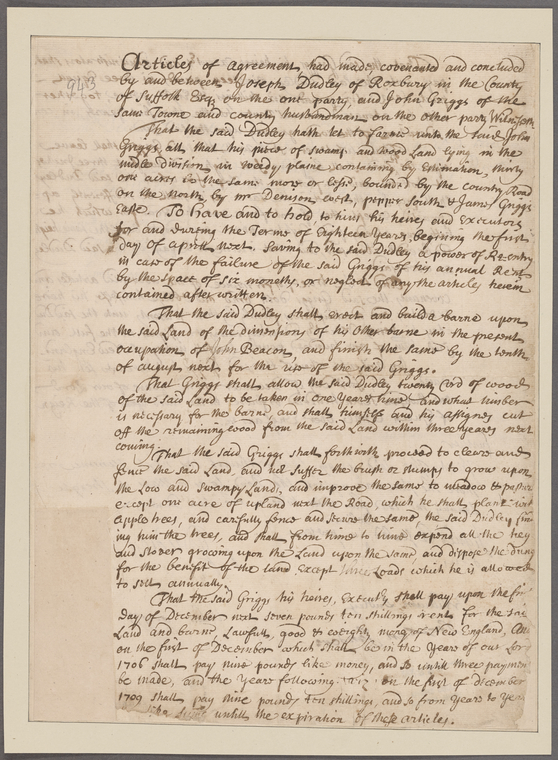 943
Articles of agreement had made, covenanted and concluded
by and between Joseph Dudley of Roxbury in the County
of Suffolk Esqr on the one party, and John Griggs of the
same Towne and county husbandman on the other party Witnesseth
That the said Dudley hath let to farme unto the said John
Griggs all that his piece of swamp and wood Land lying in the
midle Division in weedy plaine containing by Estimation, thirty
one acres be the same more or lesse, bounded by the country Road
on the North, by mr Denison west, pepper South & James Griggs
Easte. To have and to hold to him his heires and Executors
for and during the Terme of Eighteen Years, begining the first
day of aprill next. saving to the said Dudley a power of Reentry
in case of the failure of the said Griggs of his annual Rent
by the space of six moneths, or neglect of any the articles herein
contained after written.
That the said Dudley shall erect and build a barne upon
the said Land of the dimensions of his other barne in the present
occupation of John Beacon, and finish the same by the tenth
of august next for the use of the said Griggs.
That Griggs shall allow the said Dudley twenty Cord of wood
of the said Land to be taken in one Years time, and what timber
is necessary for the barne, and shall himself and his assignes cut
off the remaining wood from the said Land within three yeares next
coming.
That the said Griggs shall forthwith proceed to cleare and
fence the said Land, and not suffer the brush or stumps to grow upon
the Low and swampy Land, and improve the same to meadow & pasture
except one acre of upland next the Road, which he shall plant with
Apple trees, and carefully fence and secure the same, the said Dudley
him the trees, and shall from time to time expend all the hey
and stover growing upon the Land upon the same, and dispose the dung
for the benefit of the land except three Loads which he is allowed
to sell annually.
That the said Griggs his heires, Executrs, shall pay upon the first
Day of December next seven pounds ten shillings rent for the said
Land and barne, Lawfull, good & weighty money of New England, And
on the first of December which shall be in the Year of our Lord
1706 shall pay nine pounds like money, and so untill three payments
be made, and the Years following on the first of december
1709 shall pay nine pounds ten shillings, and so from Years to Year
untill the expiration of these articles.